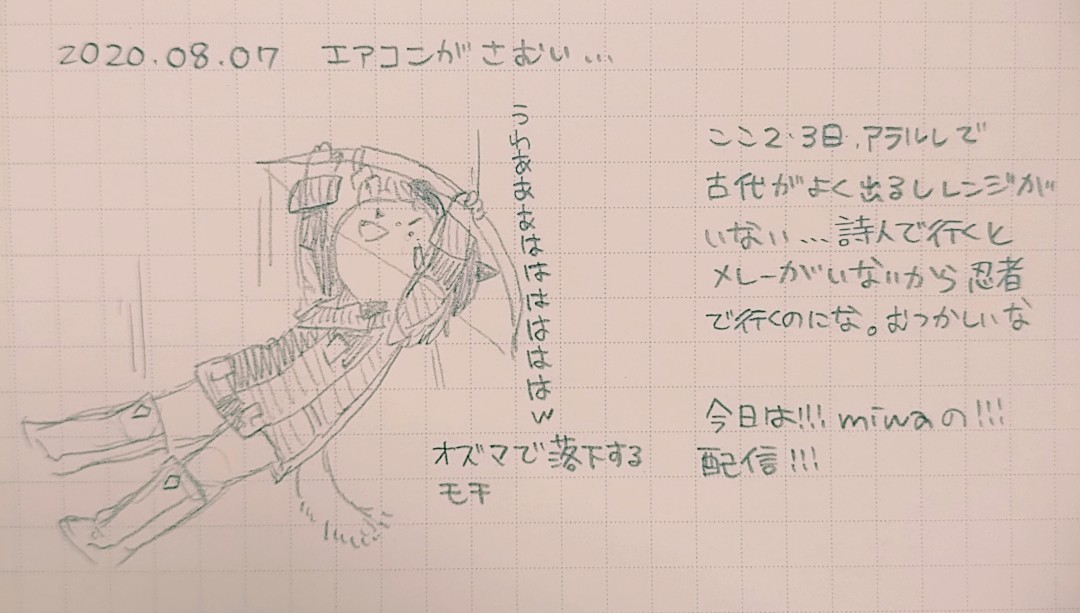 2020.08.07 エアコンがさむい...
うわぁぁぁははははははw
オズマで落下する
モチ
ここ2・3日、アラルしで
古代がよく出るしレンジが
いない...詩人で行くと
メレーがいないから忍者
で行くのにな。むつかしいな
今日は!!! miwaの!!!
配信!!!